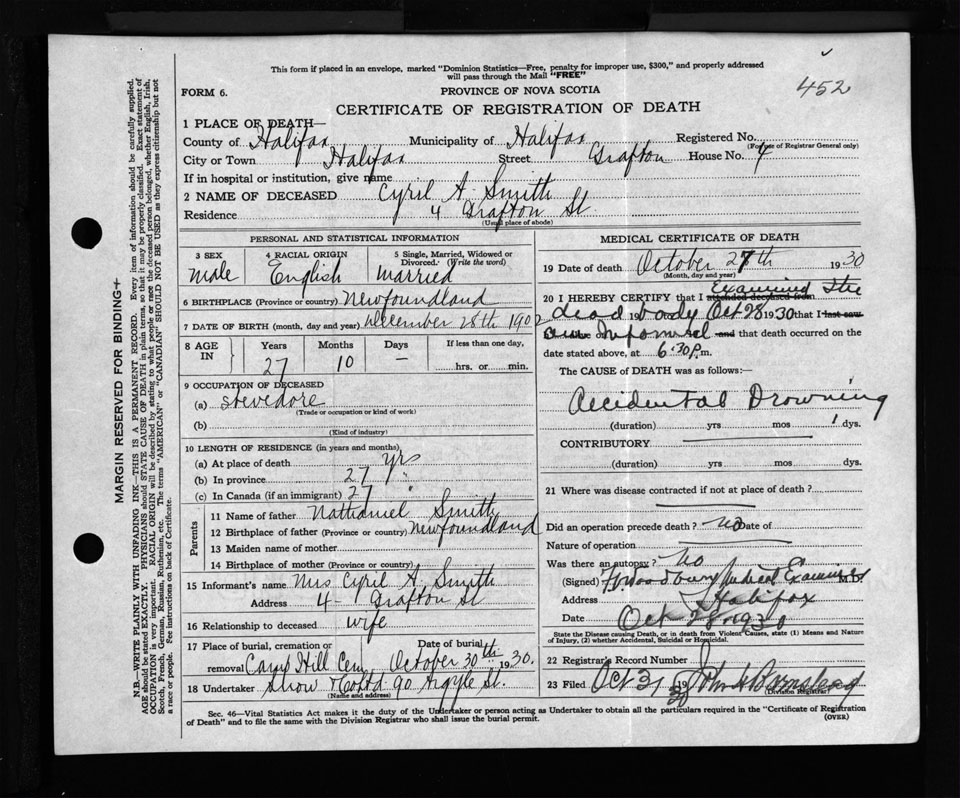 452
This form if placed in an envelope, marked "Dominion Statistics—Free, penalty for improper use, $300," and properly addressed
will pass through the Mail "FREE"
FORM 6.
PROVINCE OF NOVA SCOTIA
CERTIFICATE OF REGISTRATION OF DEATH
1 PLACE OF DEATH—
County of Halifax Municipality of Halifax Registered No.
(For use of Registrar General only)
City or Town Halifax Street Grafton House No. 4
If in hospital or institution, give name
2 NAME OF DECEASED Cyril A. Smith
Residence 4 Grafton St
(Usual place of abode)
PERSONAL AND STATISTICAL INFORMATION
3 SEX 4 RACIAL ORIGIN 5 Single, Married, Widowed or
Divorced. (Write the word)
Male English Married
6 BIRTHPLACE (Province or country) Newfoundland
7 DATE OF BIRTH (month, day and year) December 28th 1902
8 AGE IN Years Months Days If less than one day,
27 10 — hrs. or min.
9 OCCUPATION OF DECEASED
(a) Stevedore
(Trade or occupation or kind of work)
(b)
(Kind of industry)
10 LENGTH OF RESIDENCE (in years and months)
(a) At place of death yrs
(b) In province 27 "
(c) In Canada (if an immigrant) 27 "
Parents
11 Name of father Nathaniel Smith
12 Birthplace of father (Province or country) Newfoundland
13 Maiden name of mother
14 Birthplace of mother (Province or country)
15 Informant's name Mrs Cyril A. Smith
Address 4 - Grafton St
16 Relationship to deceased wife
17 Place of burial, cremation or Date of burial
removal Camp Hill Cem. October 30th 1930.
18 Undertaker Snow & Co Ltd 90 Argyle St.
(Name and address)
MEDICAL CERTIFICATE OF DEATH
19 Date of death October 27th 1930
(Month, day and year)
20 I HEREBY CERTIFY that I attended deceased from Examined the
dead body Oct 28 1930 that I last saw
on informed and that death occurred on the
date stated above, at 6:30 P.m.
The CAUSE of DEATH was as follows:—
Accidental Drowning
(duration) yrs mos 1 dys.
CONTRIBUTORY
(duration) yrs mos dys.
21 Where was disease contracted if not at place of death?
Did an operation precede death? no Date of
Nature of operation
Was there an autopsy? no
(Signed) Woodbury Medical Examiner M.D.
Address Halifax
Date Oct 28 1930
State the Disease causing Death, or in death from Violent Causes, state (1) Means and Nature
of Injury, (2) whether Accidental, Suicidal or Homicidal.
22 Registrar's Record Number
23 Filed Oct 31 1930 John H Barnstead
(Division Registrar)
Sec. 46—Vital Statistics Act makes it the duty of the Undertaker or person acting as Undertaker to obtain all the particulars required in the "Certificate of Registration
of Death" and to file the same with the Division Registrar who shall issue the burial permit.
(OVER)
MARGIN RESERVED FOR BINDING+
N.B.—WRITE PLAINLY WITH UNFADING INK—THIS IS A PERMANENT RECORD. Every item of information should be carefully supplied.
AGE should be stated EXACTLY. PHYSICIANS should STATE CAUSE OF DEATH in plain terms, so that it may be properly classified. Exact statement of
OCCUPATION is very important. RACIAL ORIGIN will be described by stating to what people or race the deceased person belonged, whether English, Irish,
Scotch, French, German, Russian, Ruthenian, etc. The terms "AMERICAN" or "CANADIAN" SHOULD NOT BE USED as they express citizenship but not
a race or people. See instructions on back of Certificate.